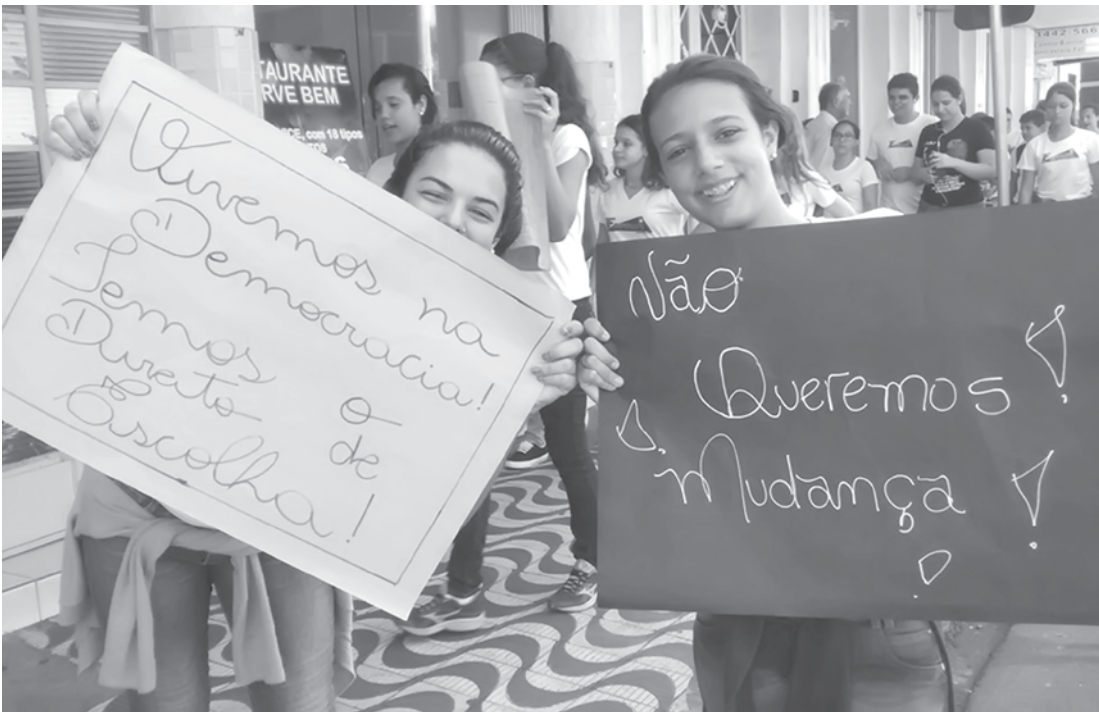 TAURANTE
RVE BEM
com 18 tipos
3442-566
Vivemos na
Democracia!
Temos o
Direito de
Escolha!
Não
Queremos !
Mudança !
!